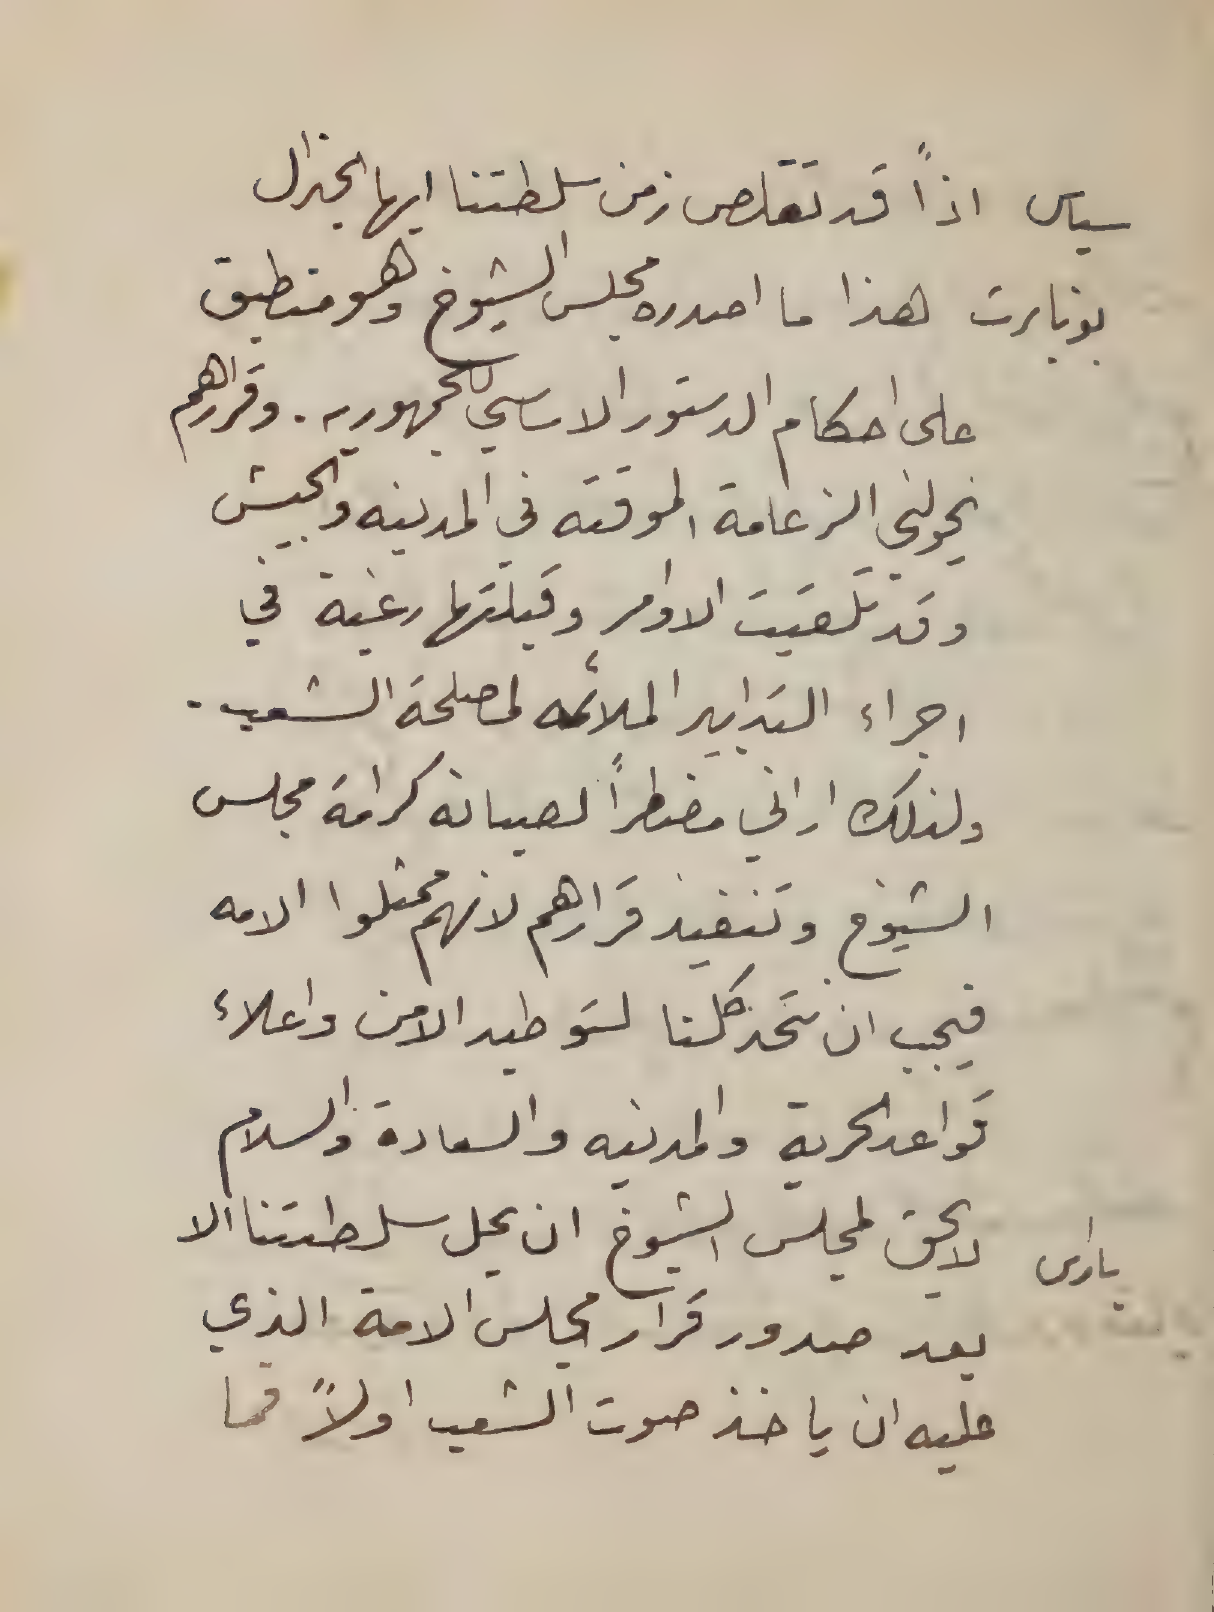 سياس اذاً قد تقلص زمن سلطتنا ايها الجنرال
بونابرت هذا ما اصدره مجلس الشيوخ وهو منطبق
على احكام الدستور الاساسي للجمهوريه. وقرارهم
يخولني الزعامة الموقته في المدينه والجيش
وقد تلقيت الاوامر وقبلتها رغبة في
اجراء التدابير الملائمه لمصلحة الشعب.
ولذلك اراني مضطراً لصيانة كرامة مجلس
الشيوخ وتنفيذ قرارهم لانهم ممثلوا الامه
فيجب ان نتحد كلنا لتوطيد الامن واعلاء
قواعد الحرية والمدنيه والسعادة والسلام
باراس لا يحق لمجلس الشيوخ ان يحل سلطتنا الا
بعد صدور قرار مجلس الامة الذي
عليه ان ياخذ صوت الشعب اولاً فما